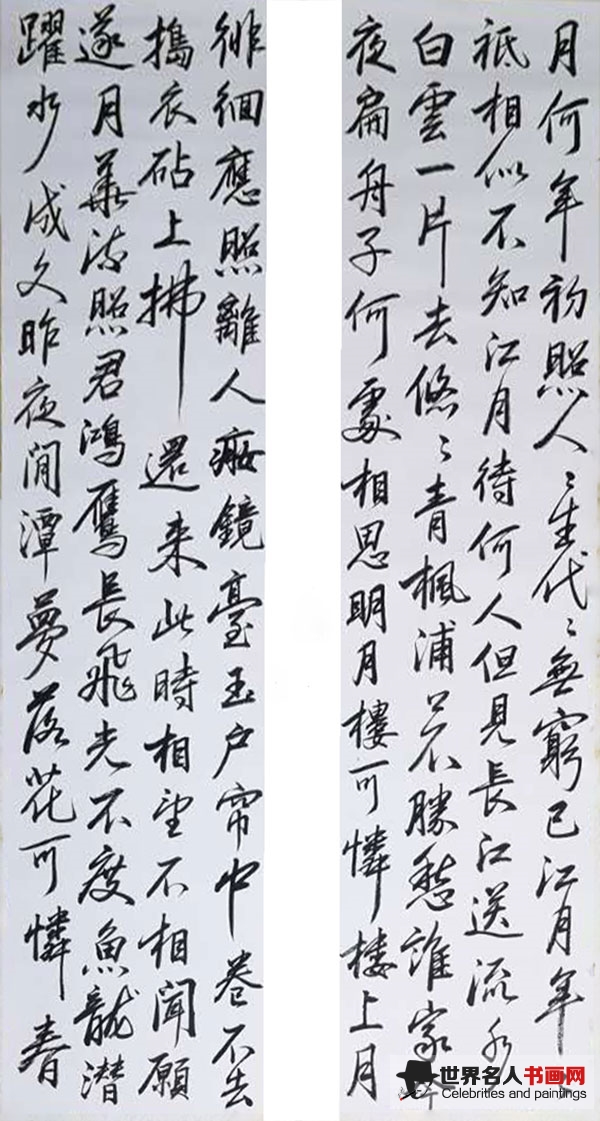 月何年初照人〻生代〻無窮已江月年〻
祗相似不知江月待何人但見長江送流水
白雲一片去悠〻青楓浦上不勝愁誰家
夜扁舟子何處相思明月樓可憐樓上月
徘徊應照離人妝鏡臺玉戶帘中卷不去
搗衣砧上拂還來此時相望不相聞願
逐月華流照君鴻鴈長飛光不度魚龍潛
躍水成文昨夜閒潭夢落花可憐春
世界名人书画网
Celebrities and paintings